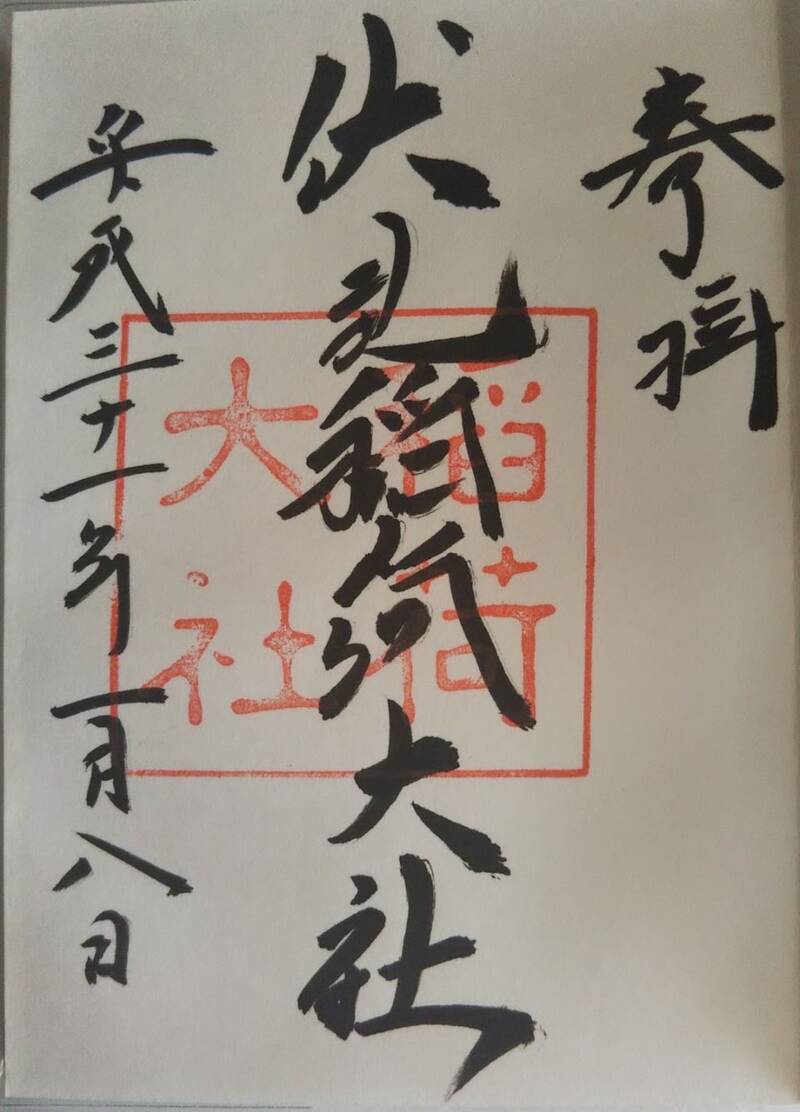 奉拝
伏見稲荷大社
平成三十一年一月八日
稲荷
大社